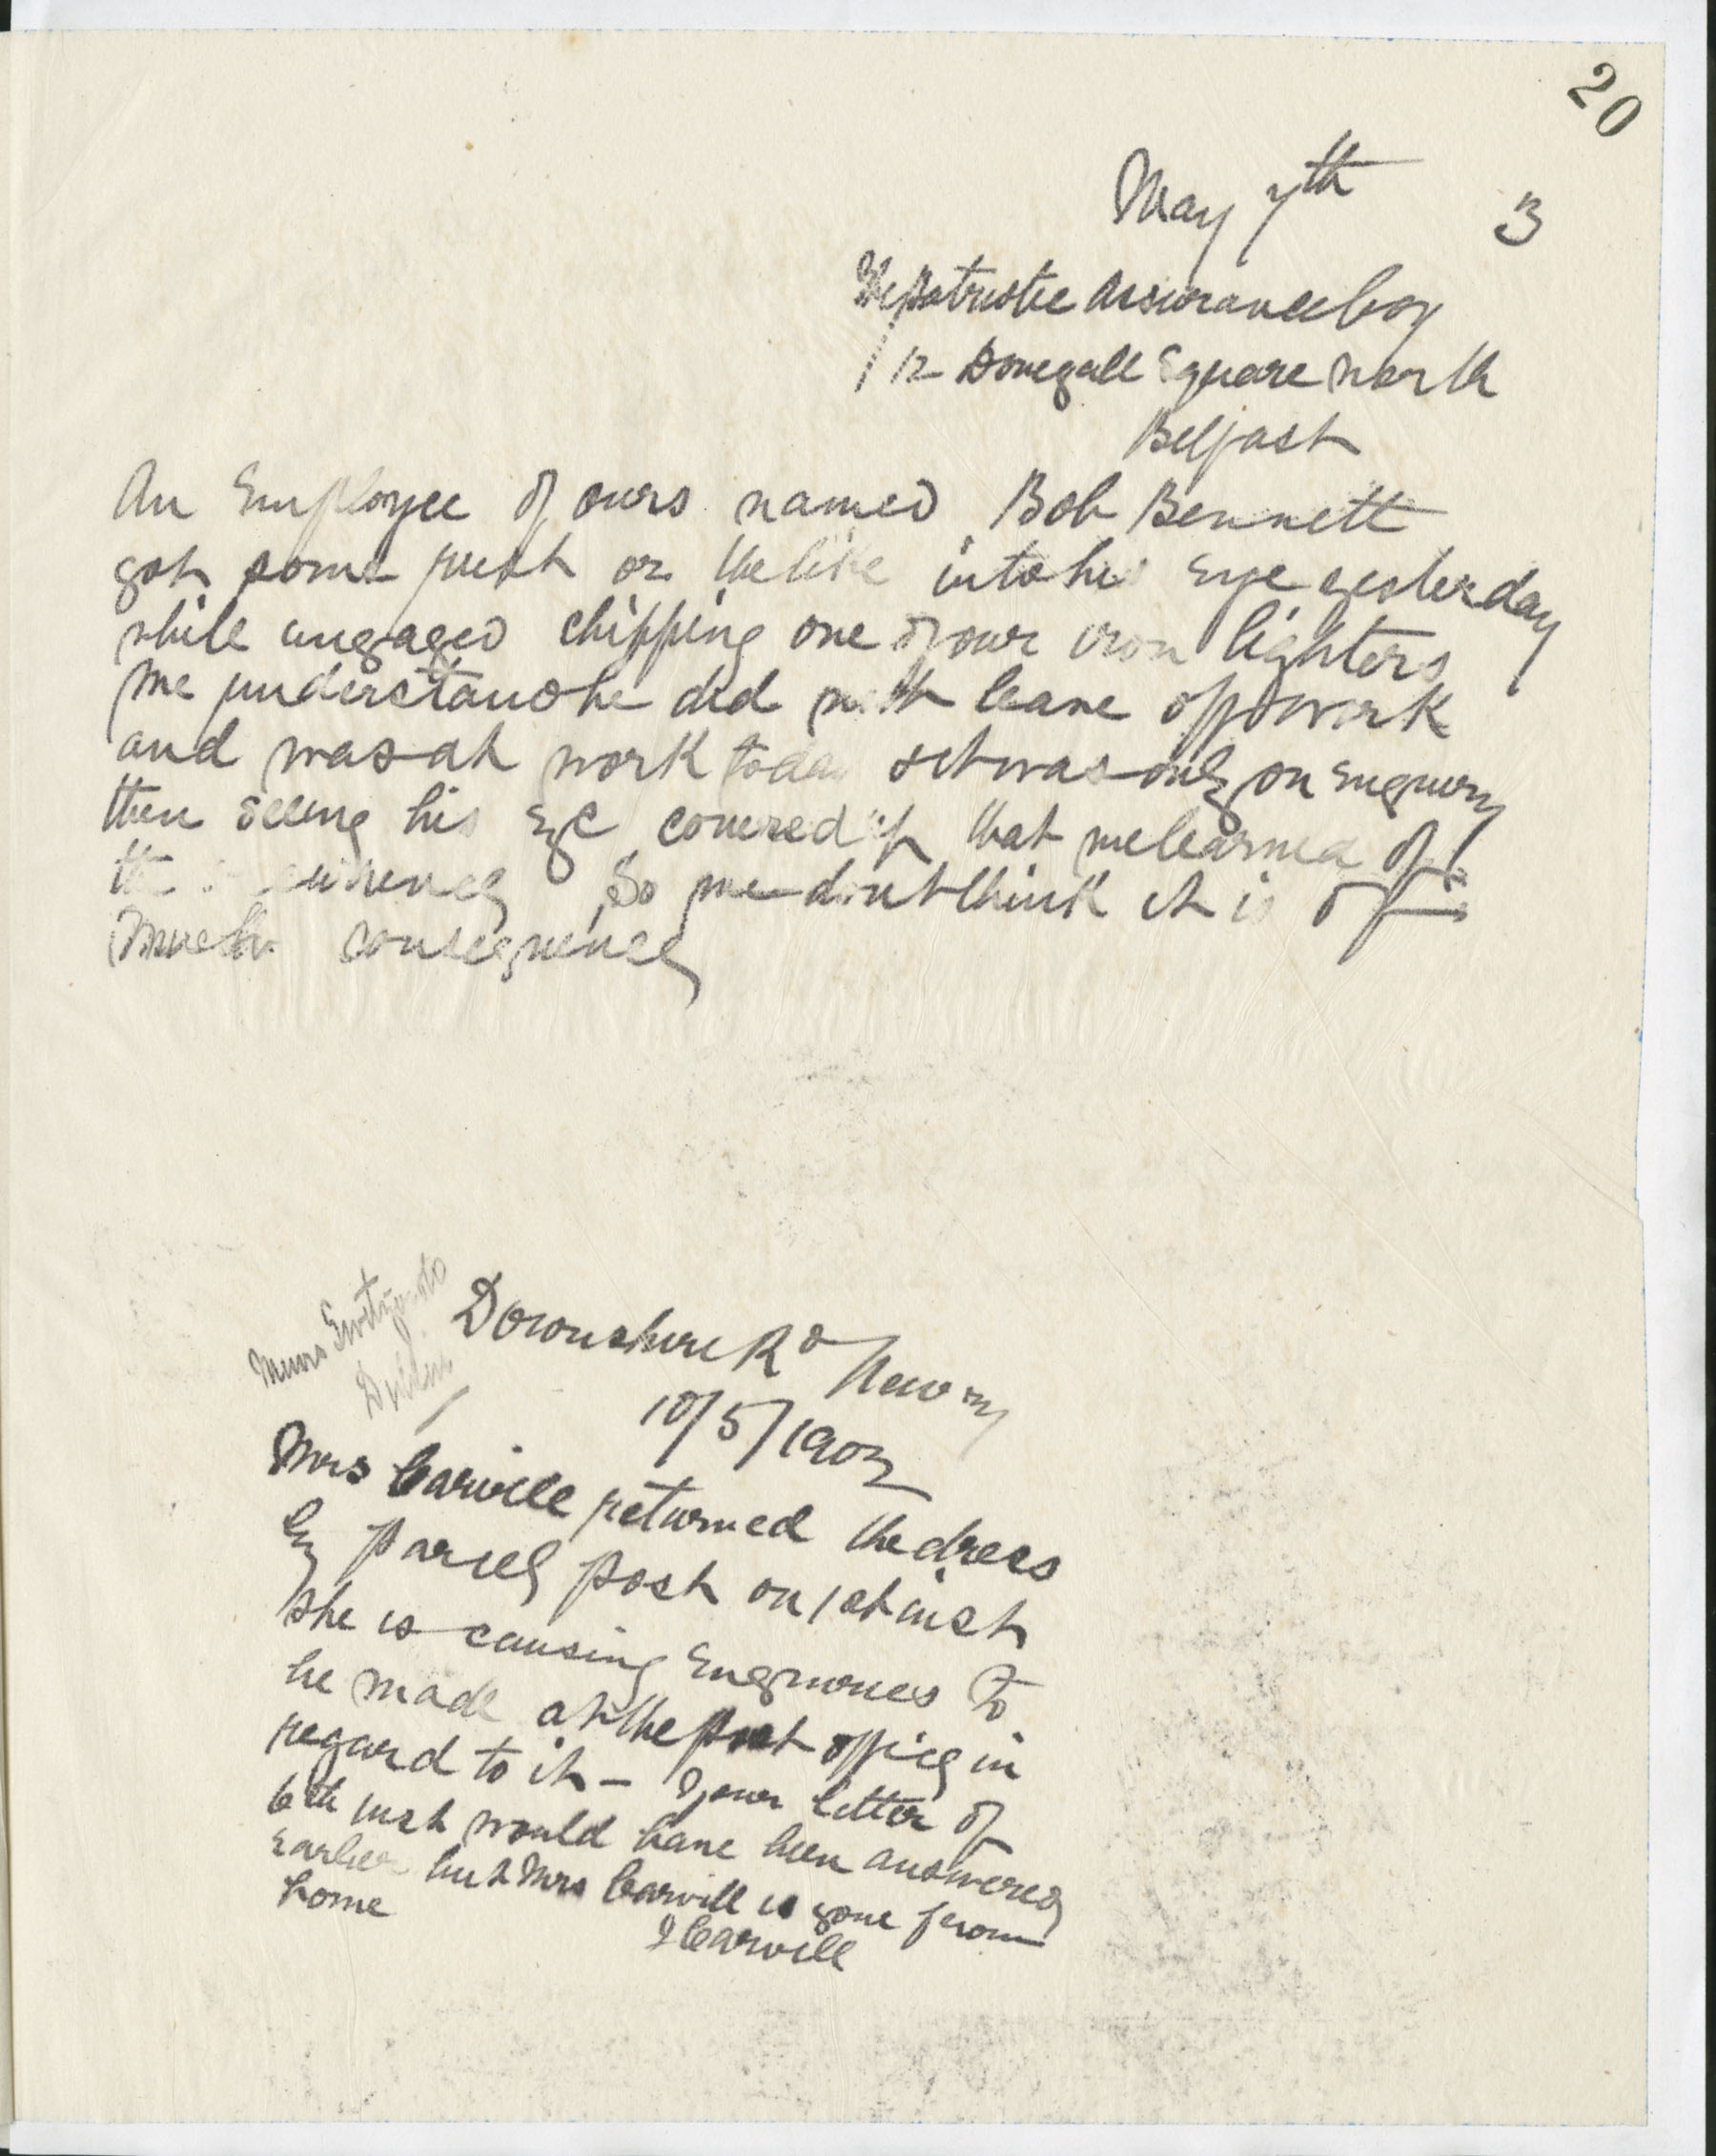 20
May 7th 3
The Patriotic Assurance Coy
12 Donegall Square North
Belfast
An Employee of ours named Bob Bennett
got some rust or the like into his Eye yesterday
while engaged chipping one of our iron lighters
We understand he did not leave off work
and was at work today & it was only on Enquiry
then seeing his Eye covered up that we learned of
the So we dont think it is of
Much consequence
Messrs
Dublin
Downshire Rd Newry
10/5/1903
Mrs Carvill returned the dress
by parcel post on 1st inst
She is causing Enquiries to
be made at the post office in
regard to it - Your letter of
6th inst would have been answered
Earlier but Mrs Carvill is gone from
home
J Carvill